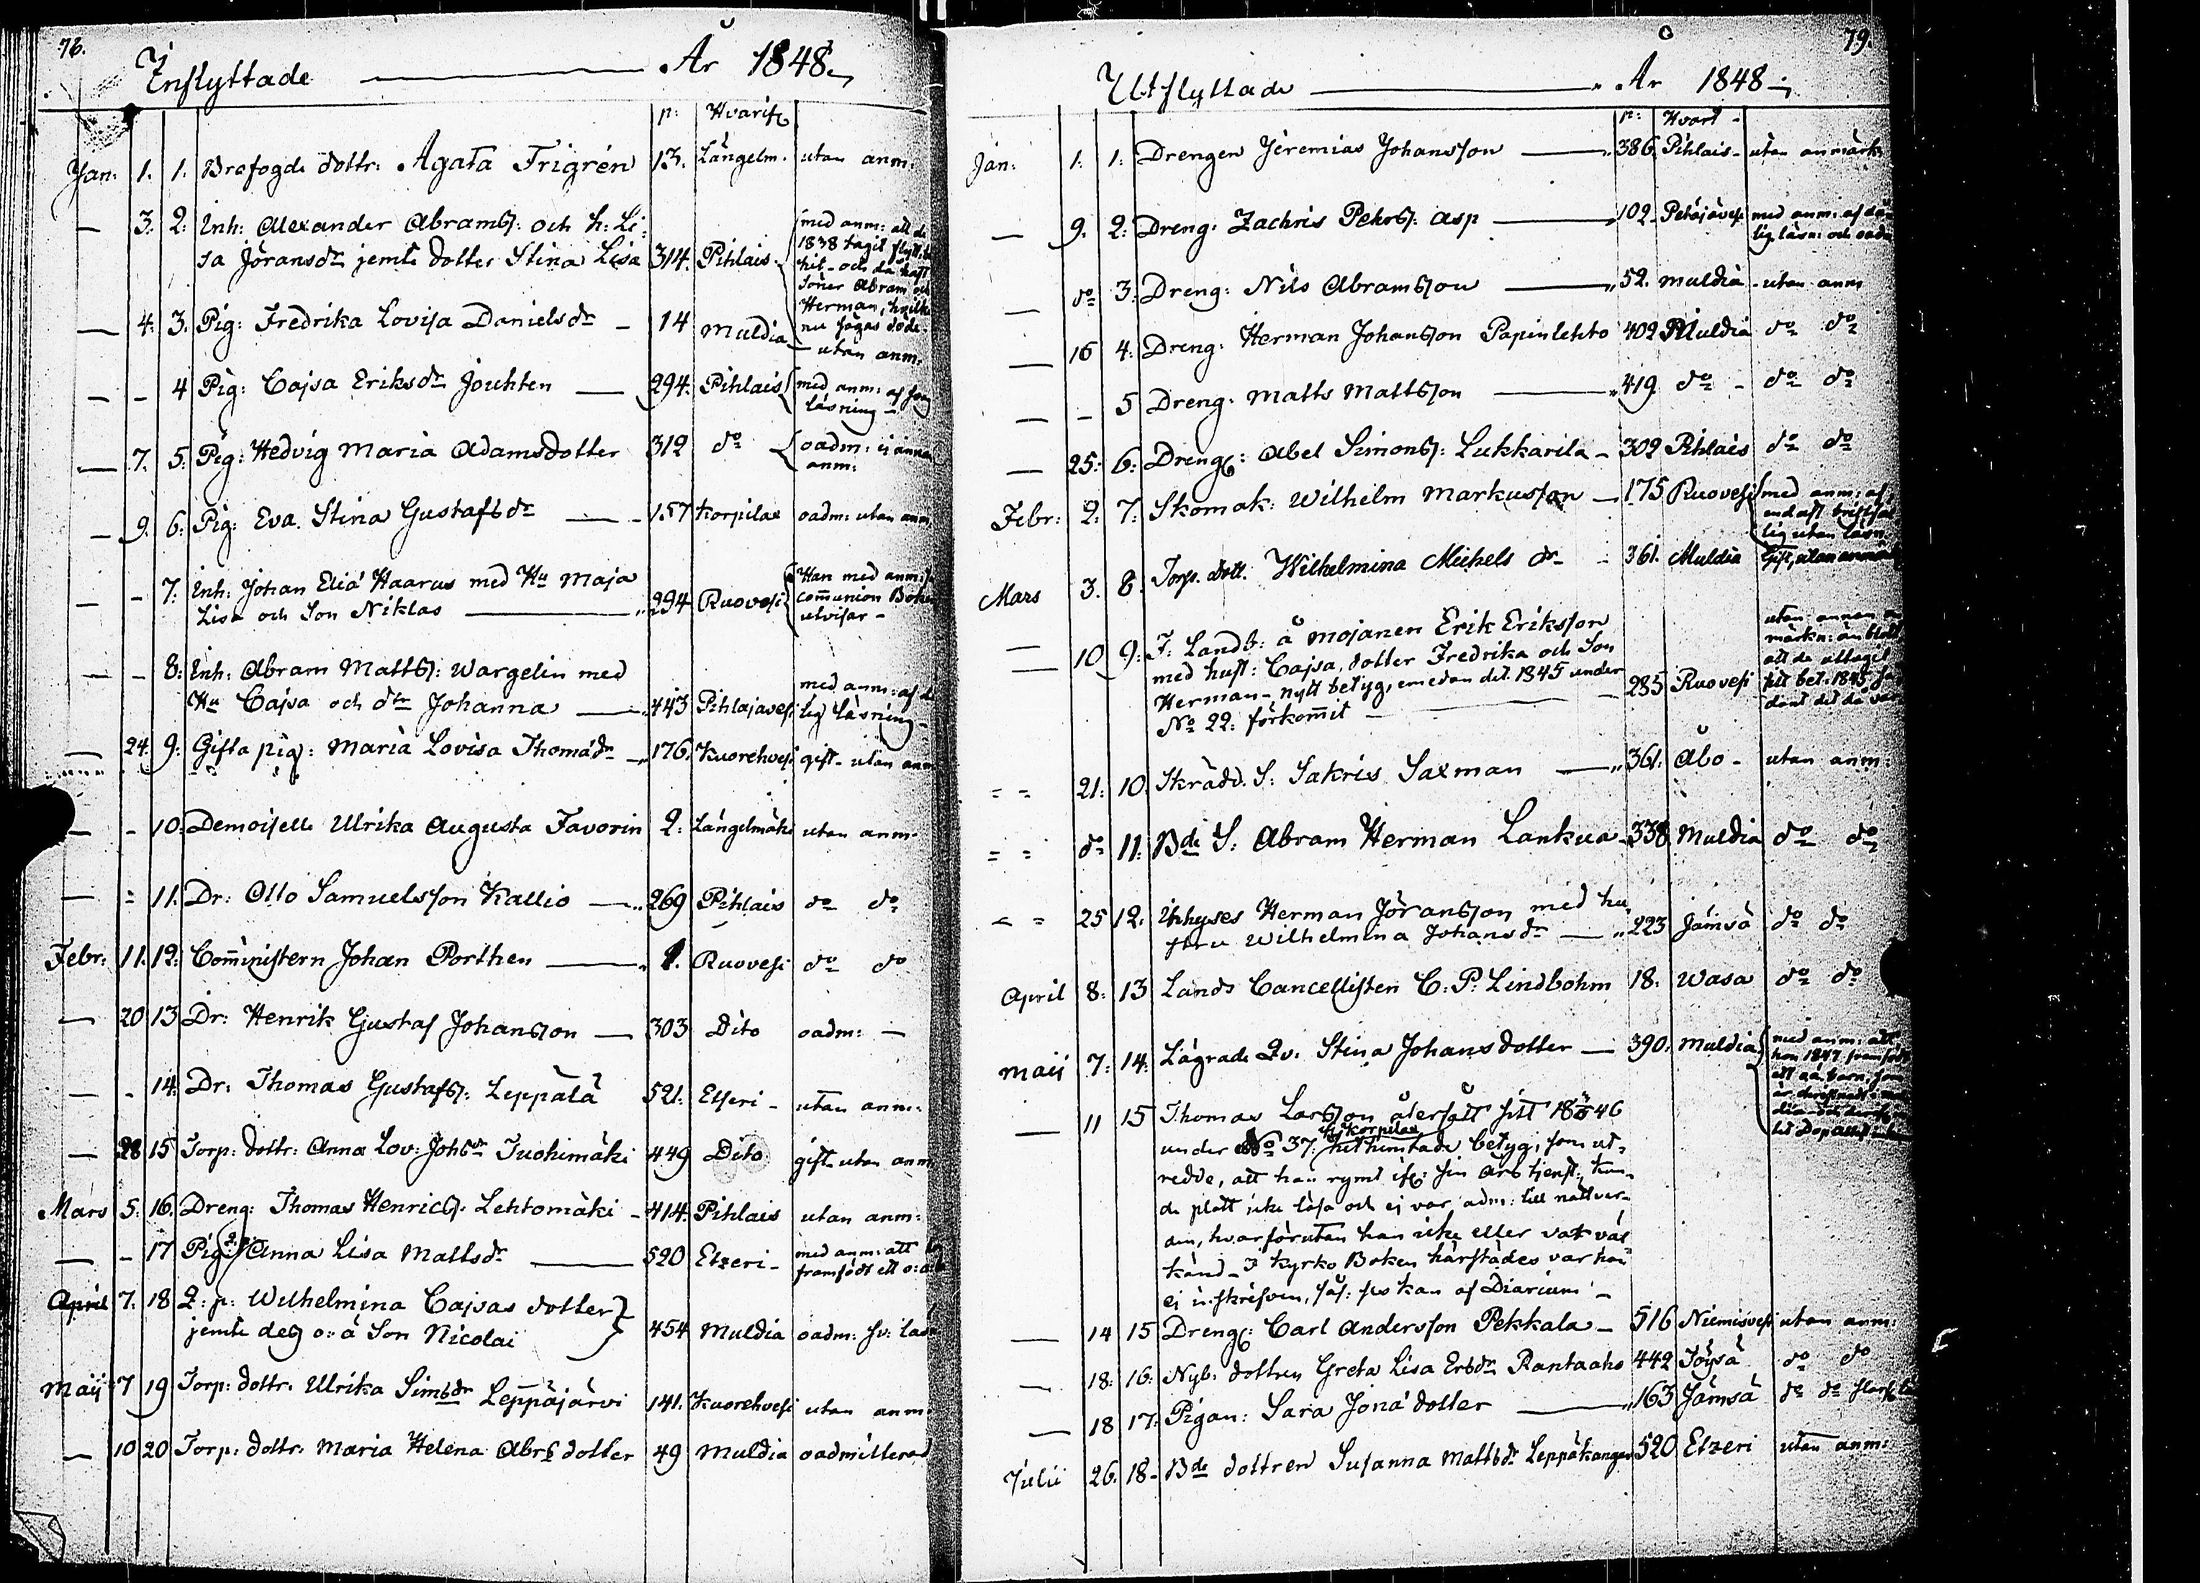 76.
Inflyttade År 1848
p: Hvarifr
Jan: 1. 1. Brofogde dottr: Agata Frigrén 13. Längelm. utan anm:
3. 2. Inh: Alexander Abramss: och h: Li-
sa Jöransdr jemte dotter Stina Lisa 314. Pihlais.
med anm: att de
1838 tagit flytt.b.
hit - och då haft
Söner Abram och
Herman, hvilka
nu sägas döde.
4. 3. Pig: Fredrika Lovisa Danielsdr 14 Muldia utan anm:
4 Pig: Cajsa Eriksdr Jouhten 294. Pihlais med anm: af svag
läsning
7. 5. Pig: Hedvig Maria Adamsdotter 312 do oadm: ej annan
anm:
9. 6. Pig: Eva Stina Gustafsdr 157 Korpilax oadm: utan anm
7. Inh: Johan Eliæ Haarus med Hu Maja
Lisa och Son Niklas 294 Ruovesi
Han med anm:
communion Boken
utvisar -
8. Inh: Abram Matts: Wargelin med
Hu Cajsa och dtr Johanna 443 Pihlajavesi
med anm: af
lig läsning -
24. 9. Gifta pig: Maria Lovisa Thomædr 176. Kuorehvesi gift- utan anm
10. Demoiselle Ulrika Augusta Favorin 2. Längelmäki utan anm-
11. Dr: Otto Samuelsson Kallio 269 Pihlais do do
Febr: 11. 12. Comministern Johan Porthen 1. Ruovesi do do
20 13 Dr: Henrik Gustaf Johansson 303 Dito oadm:
14. Dr: Thomas Gustafs: Leppälä 521. Etseri - utan anm:
28 15 Torp: dottr: Anna Lov: Johsdr Tuohimäki 449 Dito gift utan anm
Mars 5. 16. Dreng: Thomas Henrics: Lehtomäki 414. Pihlais utan anm:
17 Pig: Anna Lisa Mattsdr 520 Etzeri - med anm: att
framfödt ett o: ä:
April 7. 18 Q: p: Wilhelmina Cajsas dotter
jemte dess o: ä Son Nicolai 454 Muldia oadm: sv: läsn
Maij 7 19 Torp: dottr: Ulrika Simsdr Leppäjärvi 141. Kuorehvesi utan anm:
10 20 Torp: dottr: Maria Helena Abrs dotter 49 Muldia oadmitterad
79.
Utflyttade År 1848
p: Hvart -
Jan: 1. 1. Drengen Jeremias Johansson 386. Pihlais - utan anmärk
9. 2. Dreng: Zachris Pehrs: Asp 102. Petäjävesi med anm: af
lig läsn: och oadm
do 3. Dreng: Nils Abramsson 52. Muldia - utan anm
16 4. Dreng: Herman Johansson Papinlehto 409 Muldia do do
5 Dreng: Matts Mattsson 419. do - do do
25. 6. Dreng: Abel Simons: Lukkarila 309 Pihlais do do
Febr: 2. 7. Skomak: Wilhelm Markusson 175 Ruovesi med anm: af
endast bristfäl
lig utan läsn
Mars 3. 8. Torp. dott. Wilhelmina Michels dr 361. Muldia Gift, utan anmärk
10 9. F. Landb: å Mojanen Erik Eriksson
med hust: Cajsa, dotter Fredrika och Son
Herman - nytt betyg, emedan det 1845 under
No 22: förkommit 285 Ruovesi
utan annan
märkn: än blott
att de uttagit
sitt bet. 1845
dant det då var
21. 10. Skrädd. S: Sakris Saxman 361. Åbo - utan anm:
do 11. Bde S: Abram Herman Lankua 338. Muldia do do
25 12. Inhyses Herman Jöransson med hu
stru Wilhelmina Johansdr 223 Jämsä do do
April 8. 13 Lands Cancellisten C. P. Lindbohm 18. Wasa do do
Maij 7. 14. Lägrade Qv. Stina Johansdotter 390. Muldia
med anm: att
hon 1847 framfödt
ett oä. barn,
11 15 Thomas Larsson återfått sitt 18 46
fr Korpilax
under No 37: hithemtade betyg, som ut-
redde, att han rymt ifr: sin års tjenst, kun-
de platt icke läsa och ej var adm: till nattvar-
den, hvarförutan han icke eller var väl
känd - I Kyrko Boken härstädes var han
ej inskrifven, såsom ses kan af Diarium -
14 15 Dreng: Carl Andersson Pekkala 516 Niemisvesi utan anm:
18. 16. Nyb. dottren Greta Lisa Ersdr Rantaaho 442 Töysä do do
18 17. Pigan: Sara Jonædotter 163 Jämsä do do
Julii 26. 18 - Bde dottren Susanna Mattsdr Leppäkangas 520 Etzeri utan anm: